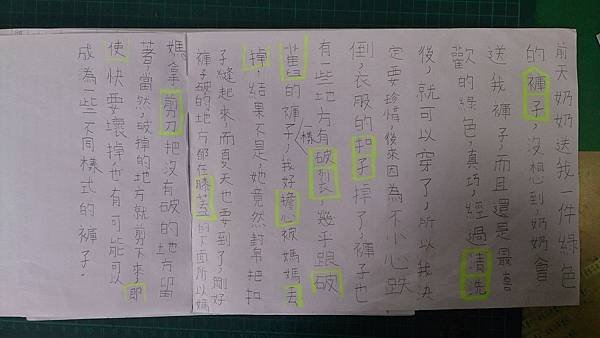 前天奶奶送我一件綠色
的褲子，沒想到，奶奶會
送我褲子，而且還是最喜
歡的綠色，真巧，經過清洗
後，就可以穿了，所以我決
定要珍惜，後來因為不小心跌
倒，衣服的扣子掉了，褲子也
有一些地方有破裂，幾乎跟破
舊的褲子一樣，我好擔心被媽媽丟
掉，結果不是，她竟然幫我把扣
子縫起來，而夏天也要到了，剛好
褲子破的地方都在膝蓋的下面所以媽
媽拿剪刀把沒有破的地方留
著，當然，破掉的地方就剪下來，即
使快要壞掉也有可能可以
成為一些不同樣式的褲子。